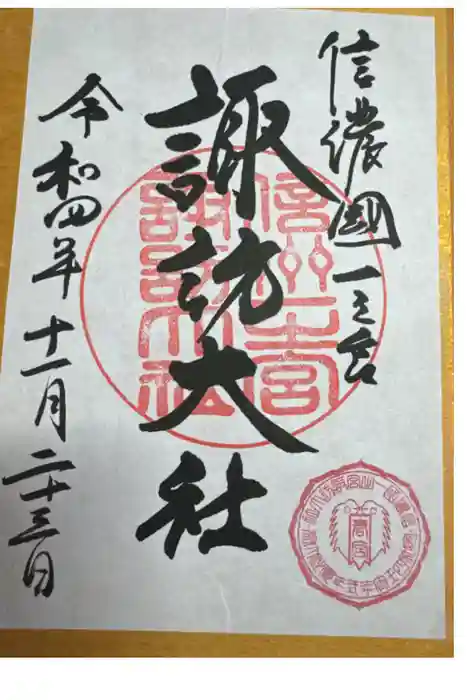 信濃國一之宮
諏訪大社
令和四年十一月二十三日
信州一之宮
諏訪大社